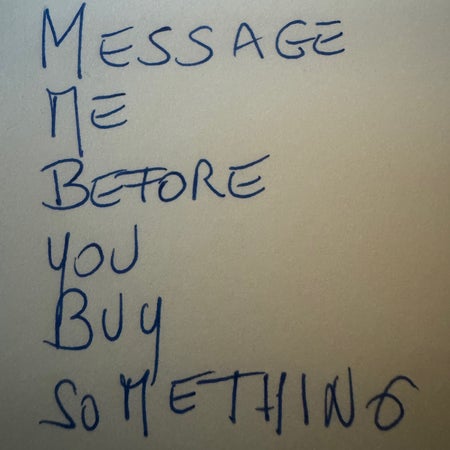 MESSAGE
ME
BEFORE
YOU
BUY
SOMETHING